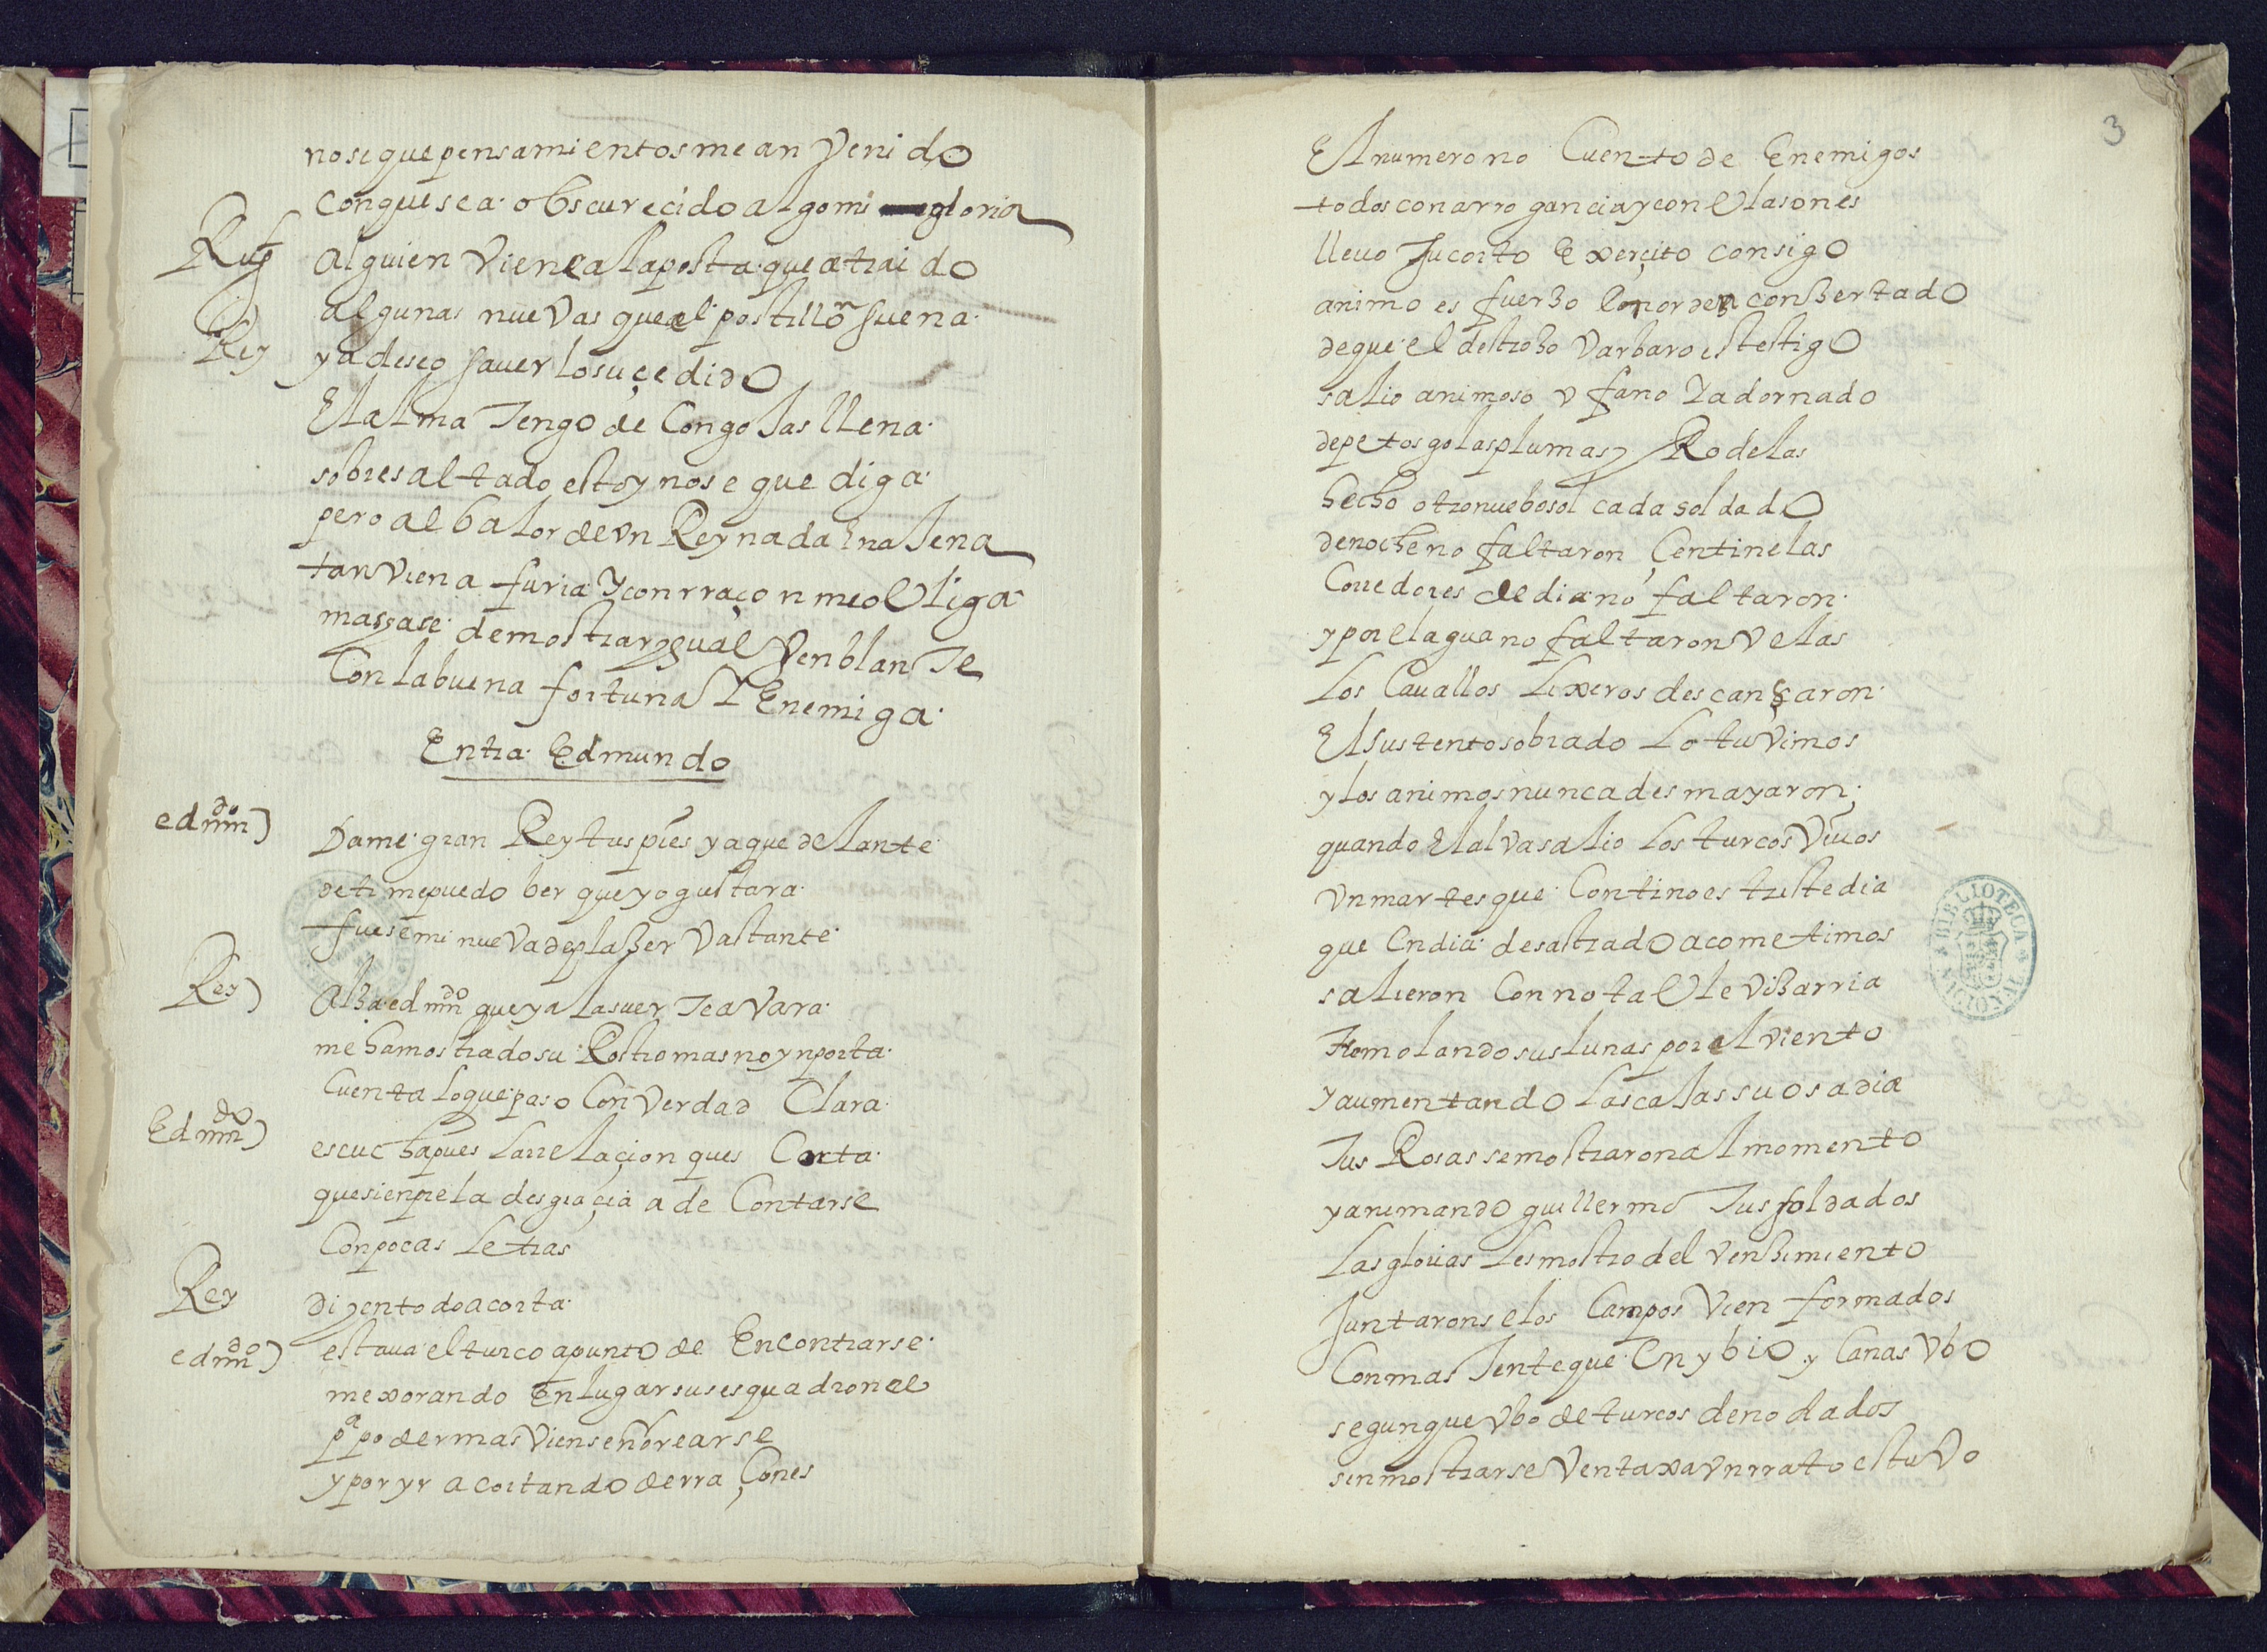 no se que pensamientos me an Venido
con que se a obscurecido algo mi gloria
Ruf
alguien viene a la posta que a traido
algunas nuevas que el postillon suena
Rey
ya deseo saver lo suçedido
El alma Tengo de Congojas llena
sobresaltado estoy no se que diga
pero al balor de vn Rey nada Enajena
tan vien a furia Y con rraçon me obliga
mas yase demostrar ygual Senblante
Con la buena fortuna Y Enemiga
Entra Edmundo
edmndo)
Dame gran Rey tus pies ya que delante
de ti me puedo ber que yo gustara
fuese mi nueva de plazer vastante
Rey)
alza edmndo que ya la suerte avara
me ha mostrado su Rostro mas no ynporta
Cuenta lo que paso Con verdad Clara
Edmndo)
escucha pues la rrelaçion ques Corta
que sienpre la desgraçia a de Contarse
Con pocas Letras
Rey
di y en todo acorta
edmndo)
estaua el turco a punto de Encontrarse
mexorando En lugar sus esquadrones
pa poder mas vien señorearse
y por yr acortando de rraçones
3
El numero no Cuento de Enemigos
todos con arrogancia y con blasones
lleuo su corto Exerçito consigo
animo esfuerzo con orden conzertado
de que el destrozo varbaro es testigo
salio animoso vfano Y adornado
de petos golas plumas y Rodelas
hecho otro nuebo sol cada soldado
de noche no faltaron Çentinelas
Corredores de dia no faltaron
y por el agua no faltaron velas
Los Cauallos Lixeros descansaron
El sustento sobrado Lo tuvimos
y los animos nunca desmayaron
quando El alva salio Los turcos vimos
vn martes que Contino es triste dia
que En dia desastrado acometimos
salieron Con notable vizarria
Tremolando sus lunas por el viento
y aumentando Las cajas su osadia
Tus Rosas se mostraron al momento
y animando guillermo Tus soldados
Las glorias Les mostro del venzimiento
Juntaronse los Campos vien formados
Con mas Jente que En ybio y Canas vbo
segun que vbo de turcos denodados
sin mostrarse ventaxa vn rrato estuvo
BIBLIOTECA NACIONAL